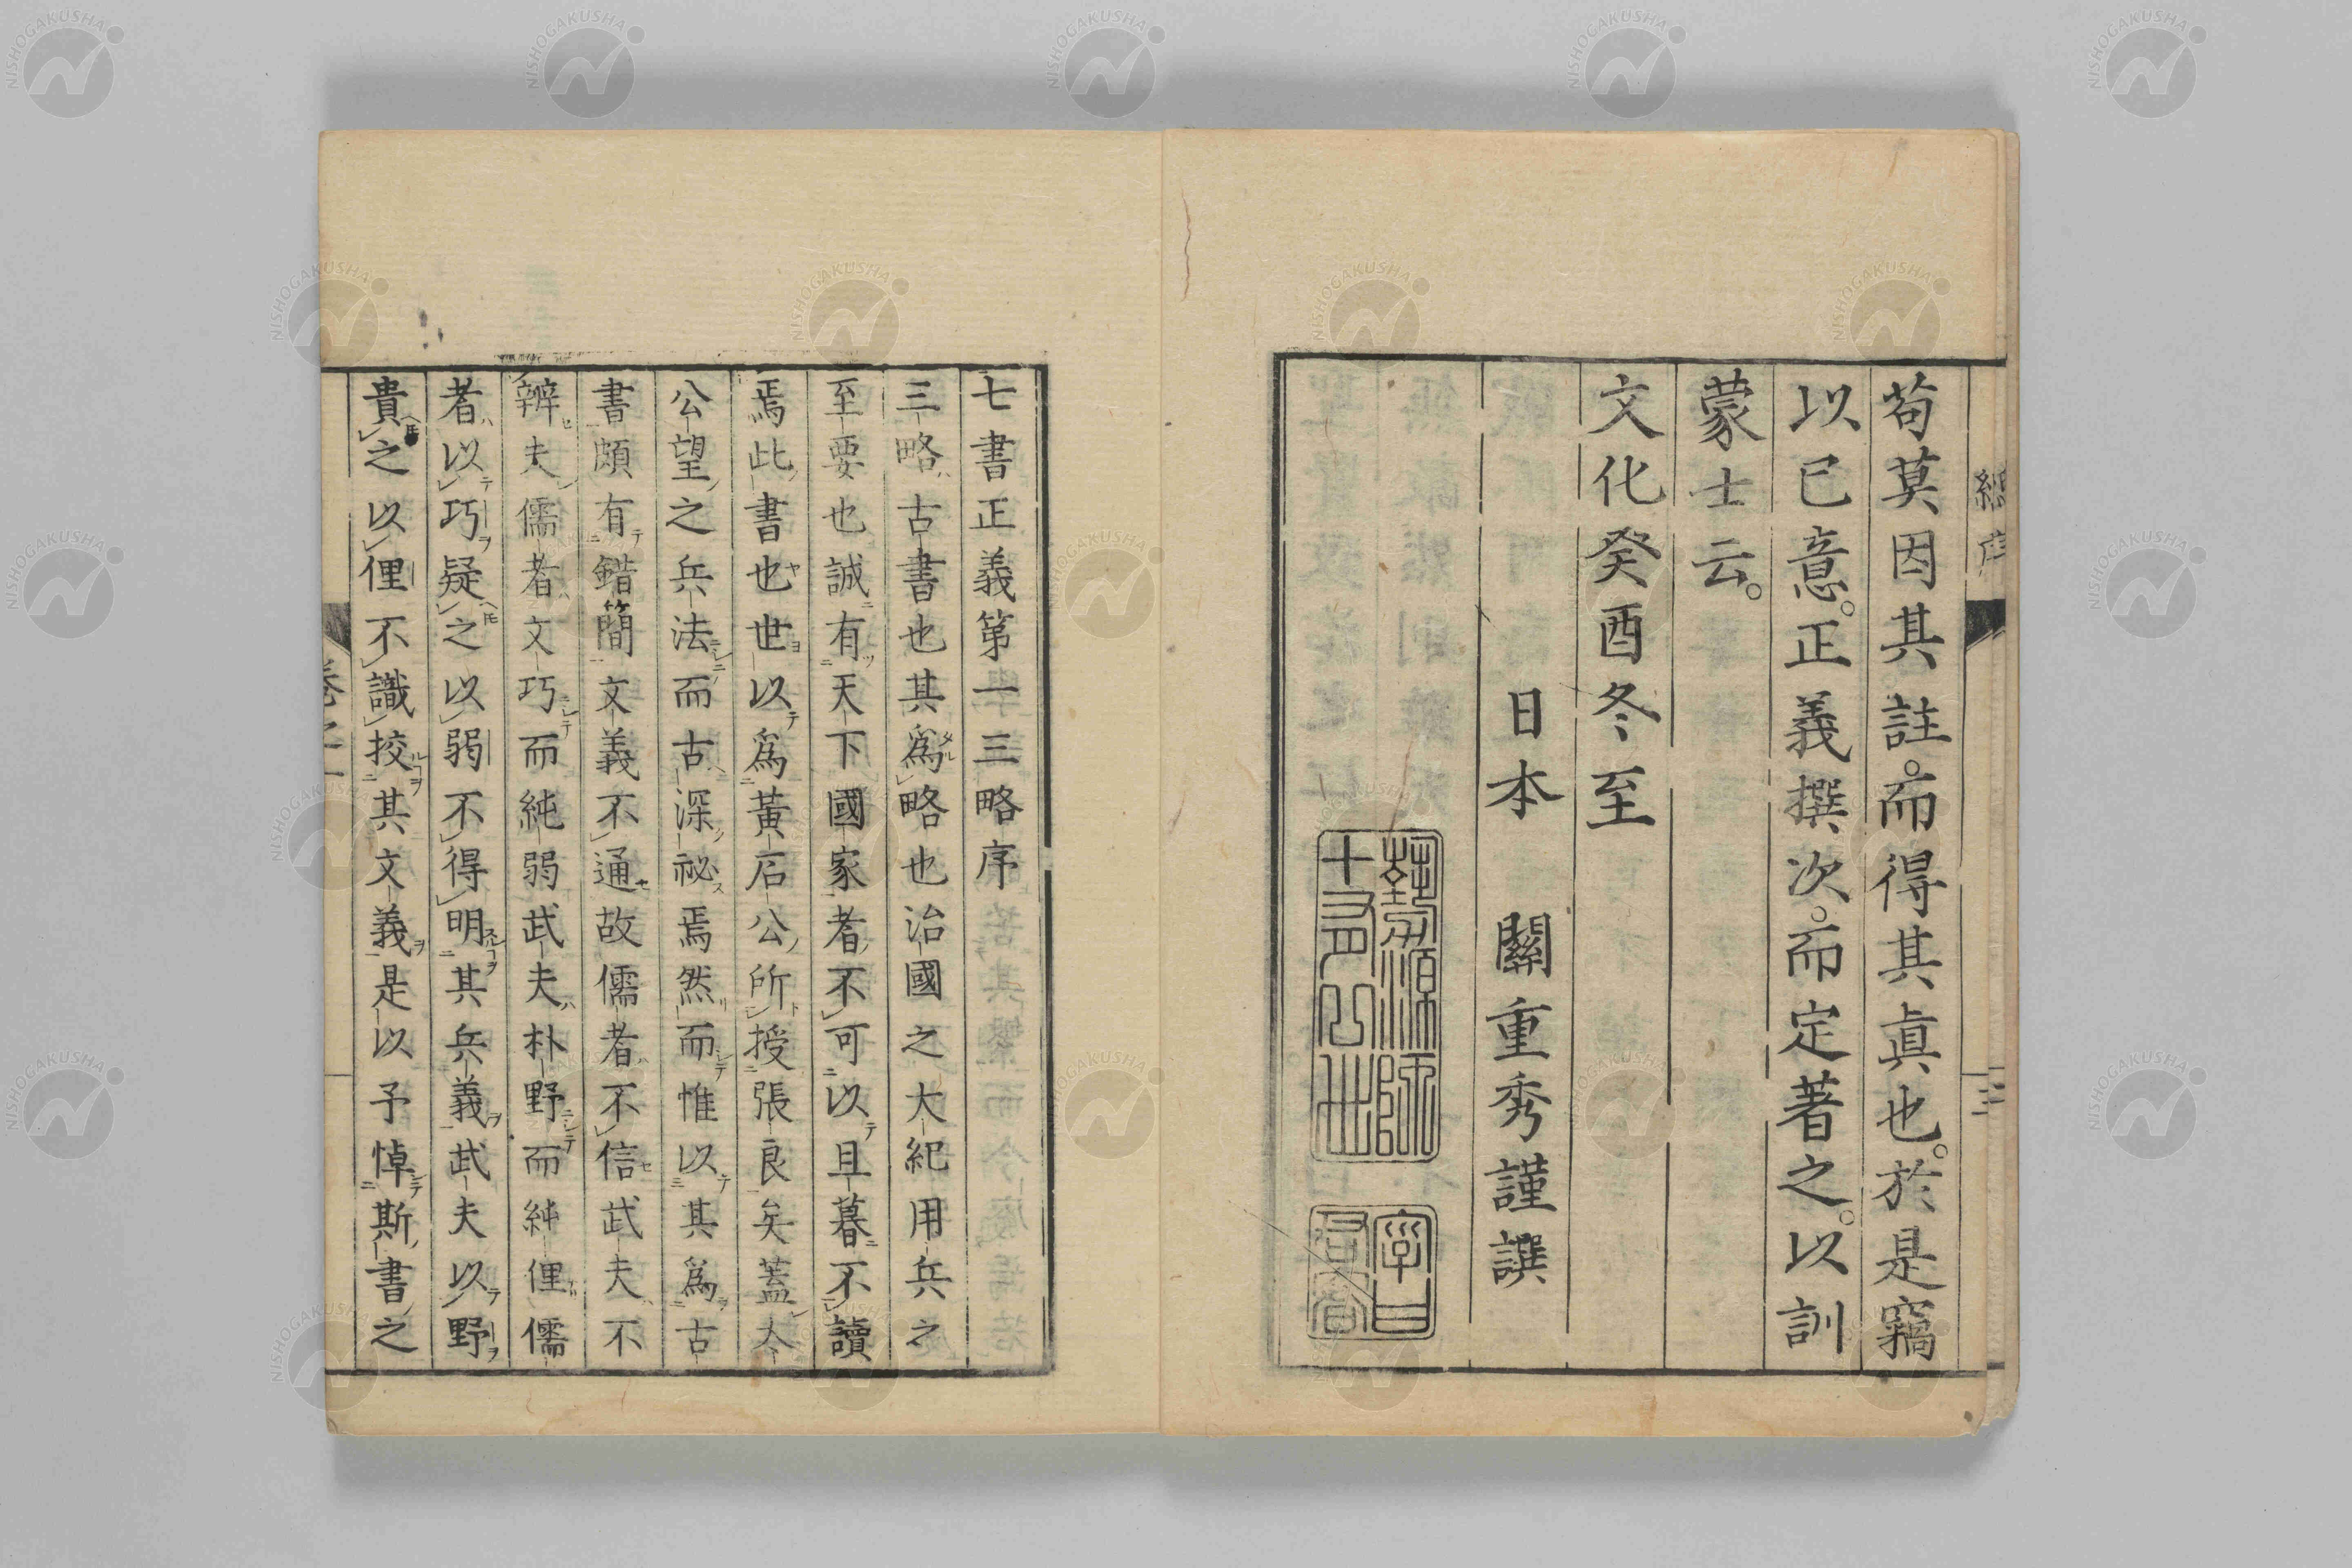 總序
三
苟莫因其註。而得其真也。於是竊
以已意。正義撰次。而定著之。以訓
蒙士云。
文化癸酉冬至
日本 關重秀謹譔
七書正義第一三略序
三略古書也其爲略也治國之大紀用兵之
至要也誠有天下國家者不可以旦暮不讀
焉此書也世以爲黃石公所授張良矣蓋太
公望之兵法而古深祕焉然而惟以其爲古
書頗有錯簡文義不通故儒者不信武夫不
辨夫儒者文巧而純弱武夫朴野而純俚儒
者以巧疑之以弱不得明其兵義武夫以野
貴之以俚不識挍其文義是以予悼斯書之
卷之一
NISHOGAKUSHA